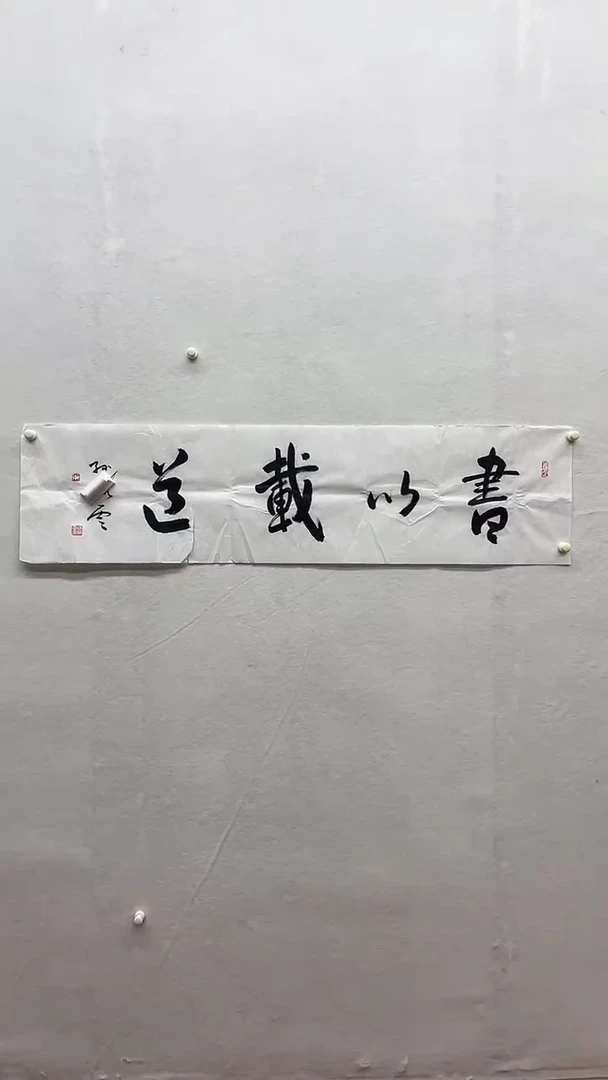 書以載道